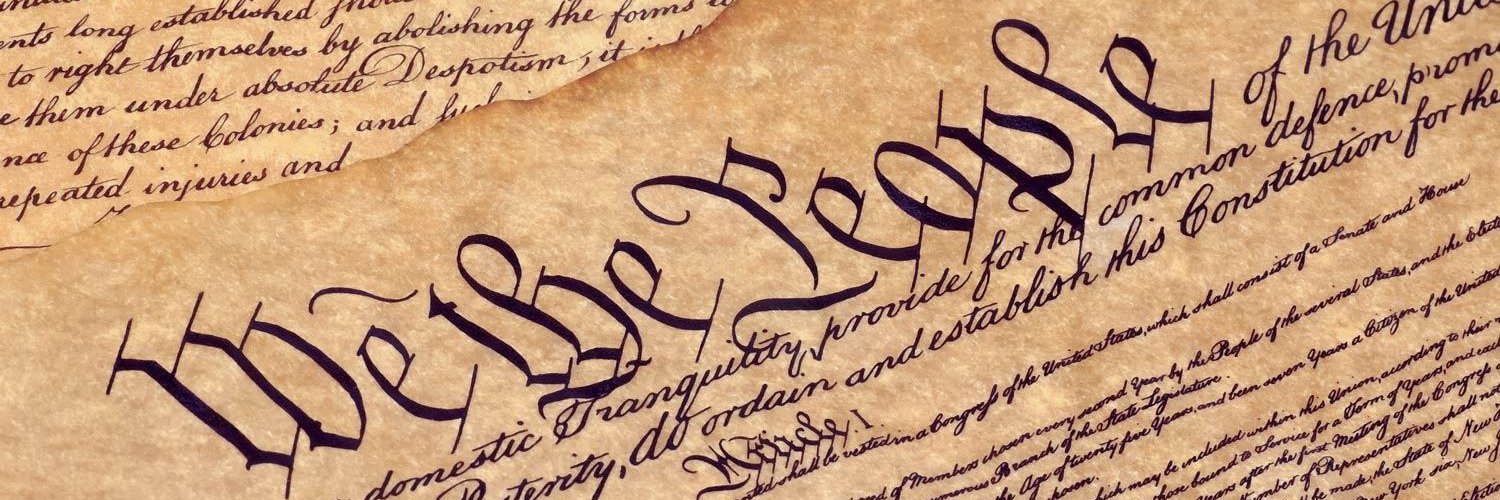 long established
to right themselves by abolishing the forms
them under absolute Despotism, it is
of these Colonies; and
repeated injuries and
We the People of the
domestic Tranquility, provide for the common defence,
do ordain and establish this Constitution for the
Article I
shall be vested in a Congress of the United States, which shall consist of a Senate and House
of Members chosen every second Year by the People of the several States, and the
Branch of the State Legislature.
the Age of twenty five Years, and been seven Years a Citizen of the United
chosen.
which may be included within this Union, according to their
those bound to Service for a Term of Years, and
after the first Meeting of the Congress
of Representatives shall not
be made, the State of New
York six, New